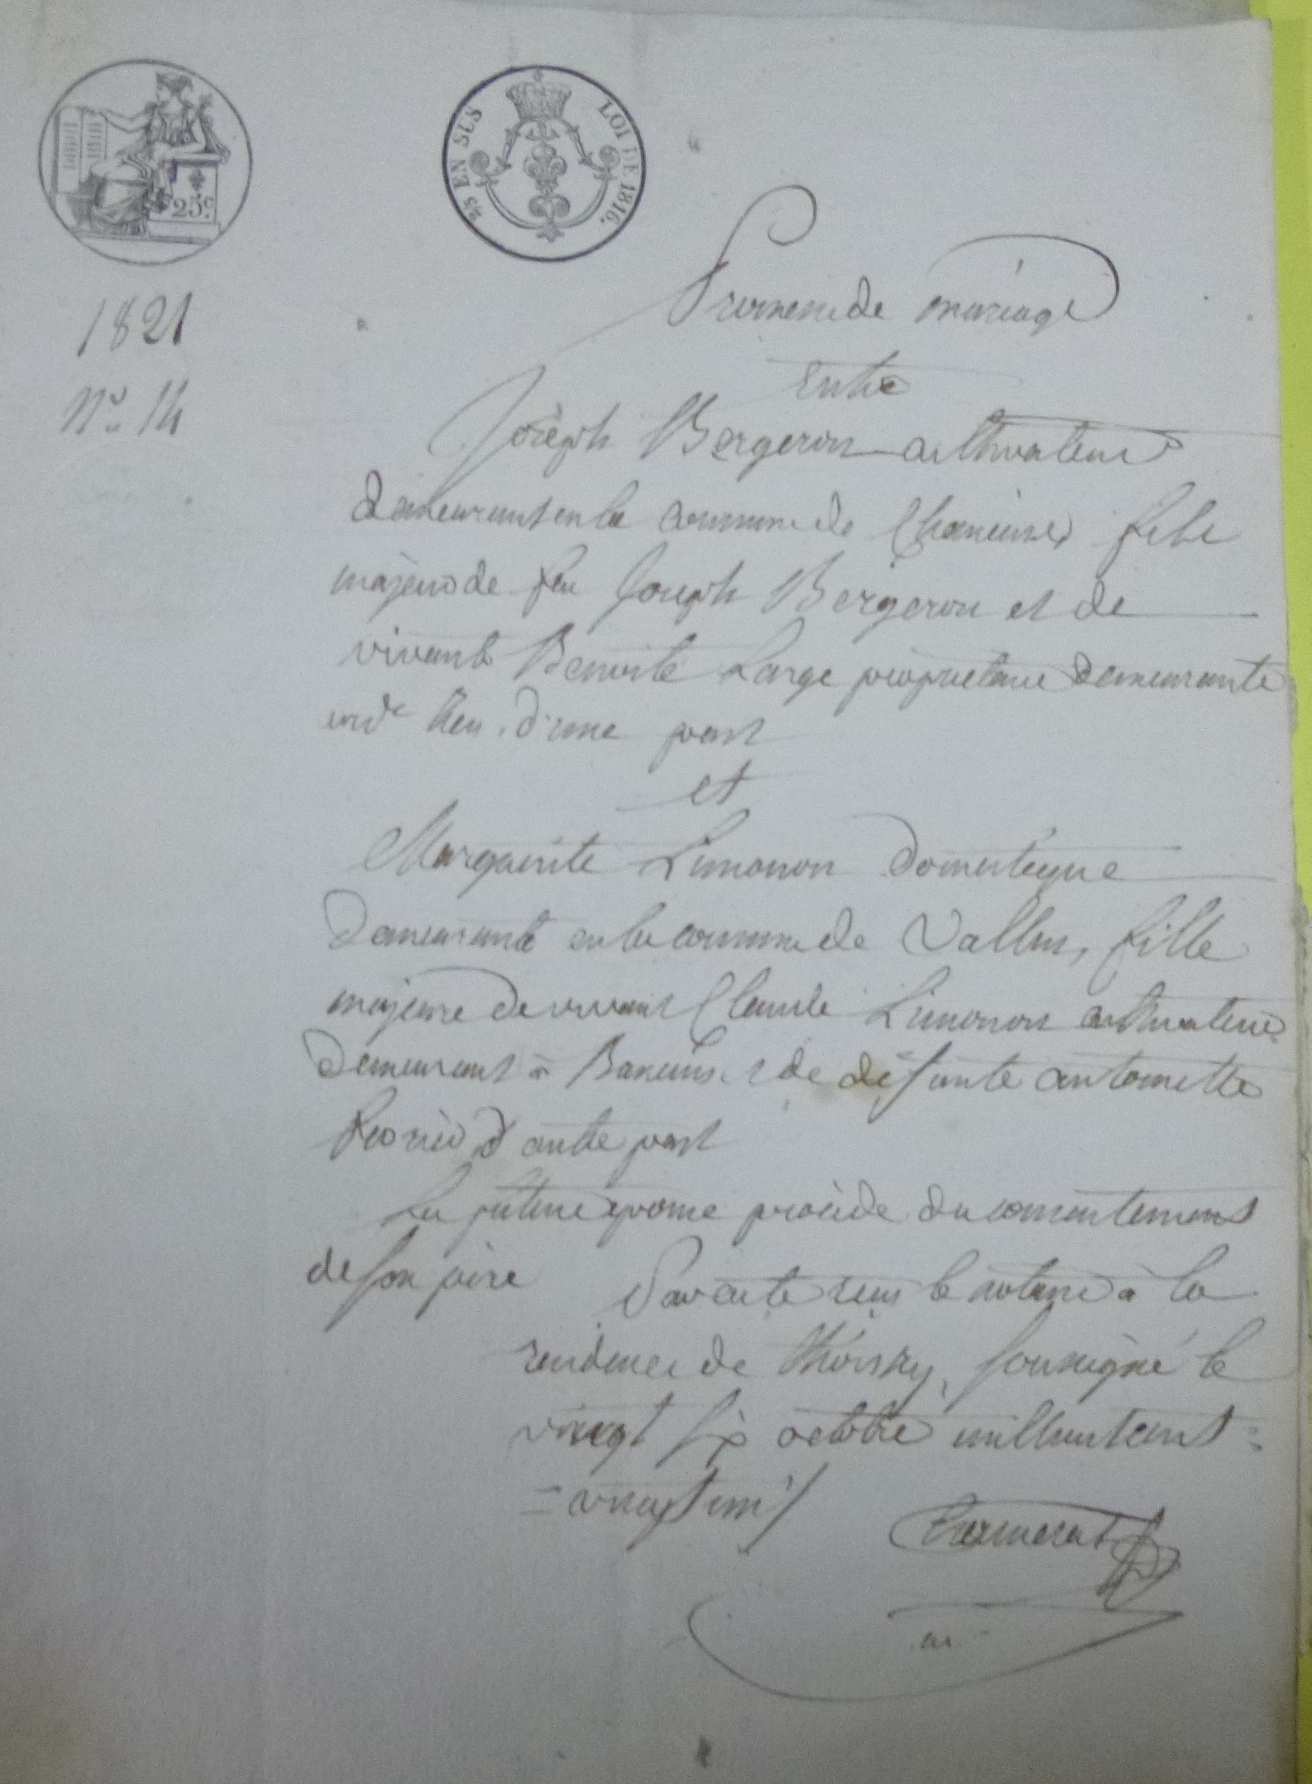 25 c.
25 EN SUS LOI DE 1816.
1821
N.o 14
Promesse de mariage
entre
Joseph Bergeron cultivateur
demeurant en la commune de Chaneins, fils
majeur de feu Joseph Bergeron et de
vivante Benoite Large propriétaire demeurante
en d.e lieu. d'une part
et
Marguerite Limonon domestique
demeurante en la commune de Valleins, fille
majeure de vivant Claude Limonon cultivateur
demeurant à Baneins et de défunte antoinette
d'autre part
La future épouse procède du consentement
de son père
Par acte reçu le notaire à la
residence de thoissey, soussigné le
vingt six octobre mil huit cent
= vingt un /